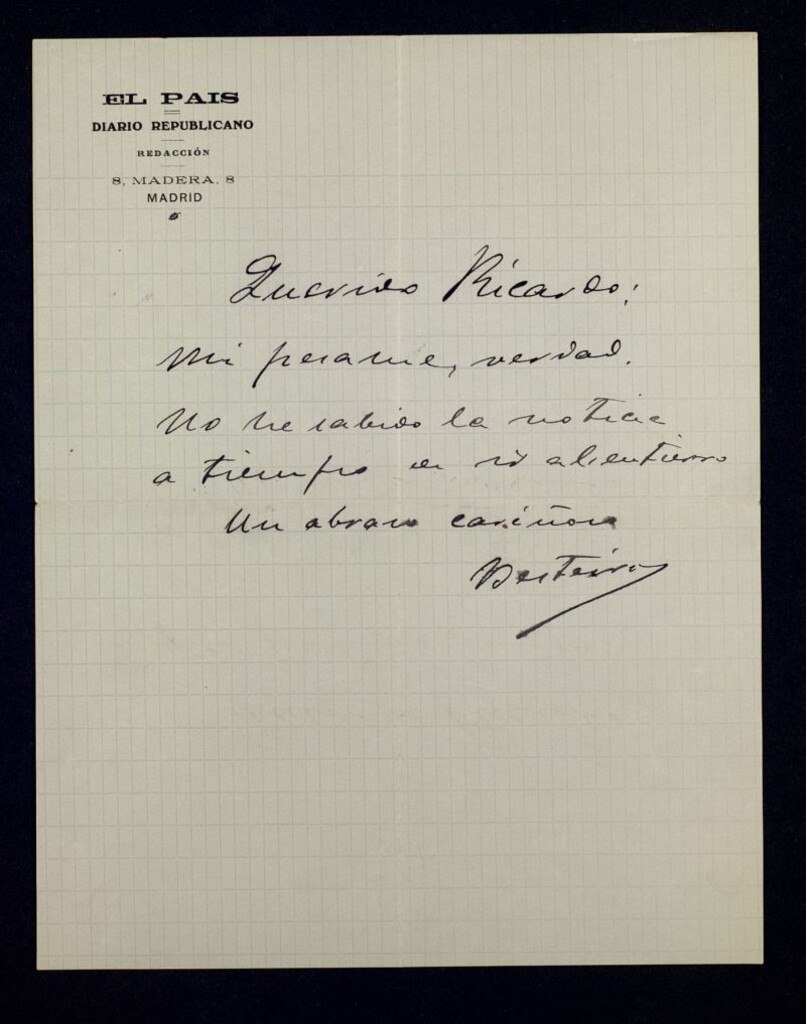 EL PAIS
DIARIO REPUBLICANO
REDACCIÓN
8, MADERA, 8
MADRID
Querido Ricardo:
Mi pesame, verdad.
No he sabido la noticia
a tiempo de ir al entierro
Un abrazo cariñoso